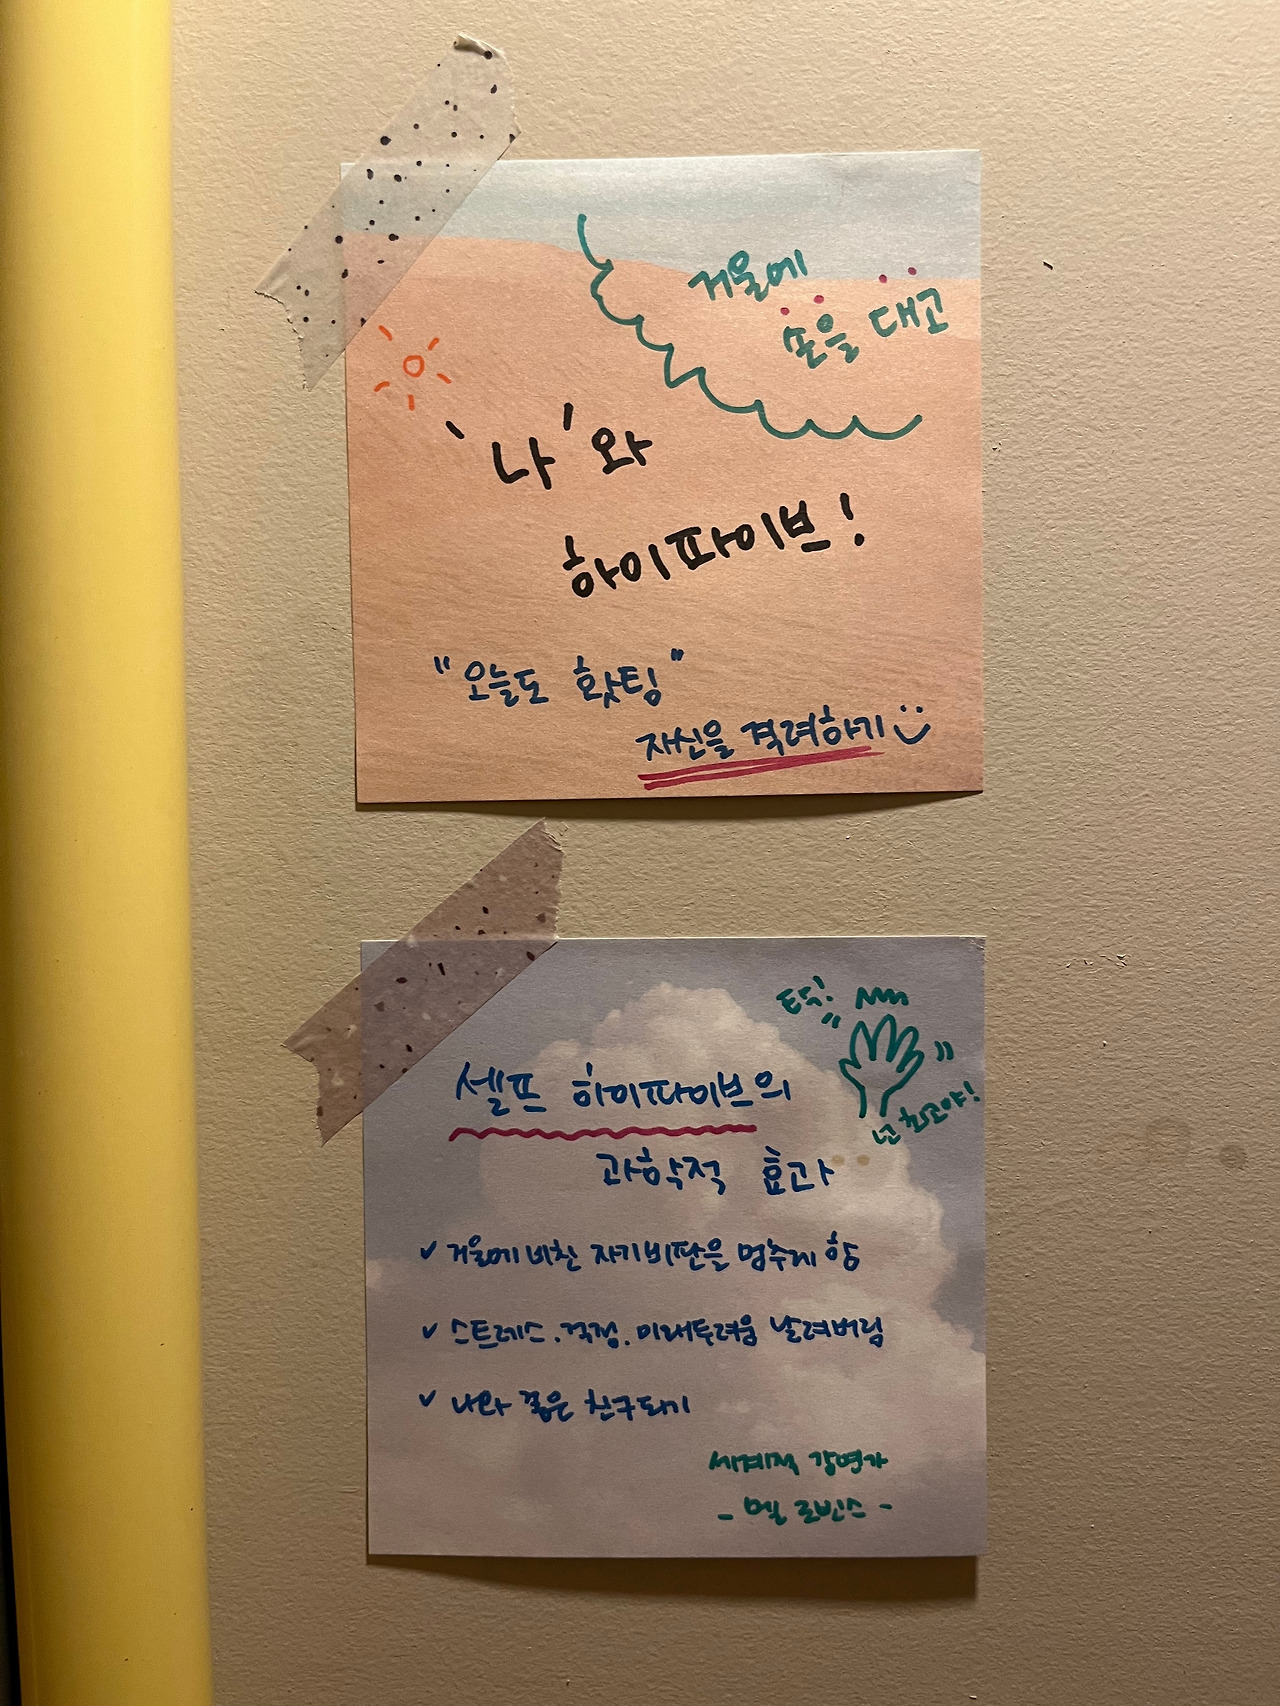 거울에
손을 대고
'나'와
하이파이브!
"오늘도 홧팅"
자신을 격려하기
넌 최고야!
셀프 하이파이브의
과학적 효과
✓ 거울에 비친 자기비판을 멈추게 함
✓ 스트레스.걱정.미래두려움 날려버림
✓ 나와 젊은 친구되기
세계적 강연가
- 멜 로빈스 -